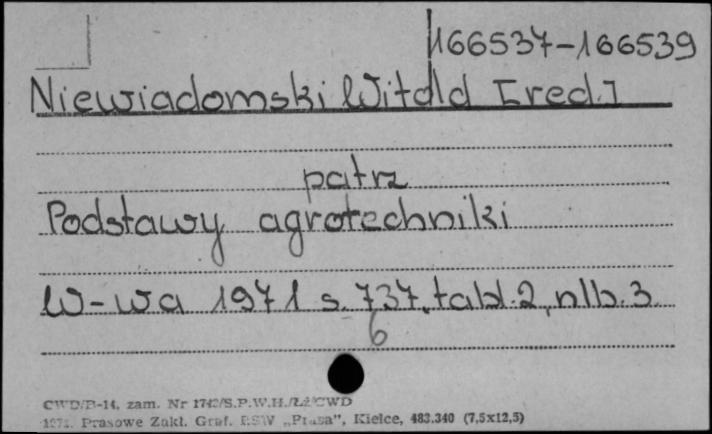 166537-166539
Niewiadomski Witold [red.]
patrz
Podstawy agrotechniki
W-wa 1971 s. 737, tabl. 2, nlb. 3
6
CWD/B-14, zam. Nr S.P.W.H.
Prasowe Zakł. Graf. RSW „Prasa”, Kielce, 483.340 (7,5x12,5)